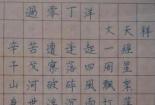 過零丁洋
文天祥
辛苦遭逢起一經
干戈寥落四周星
山河破碎風飄
身世